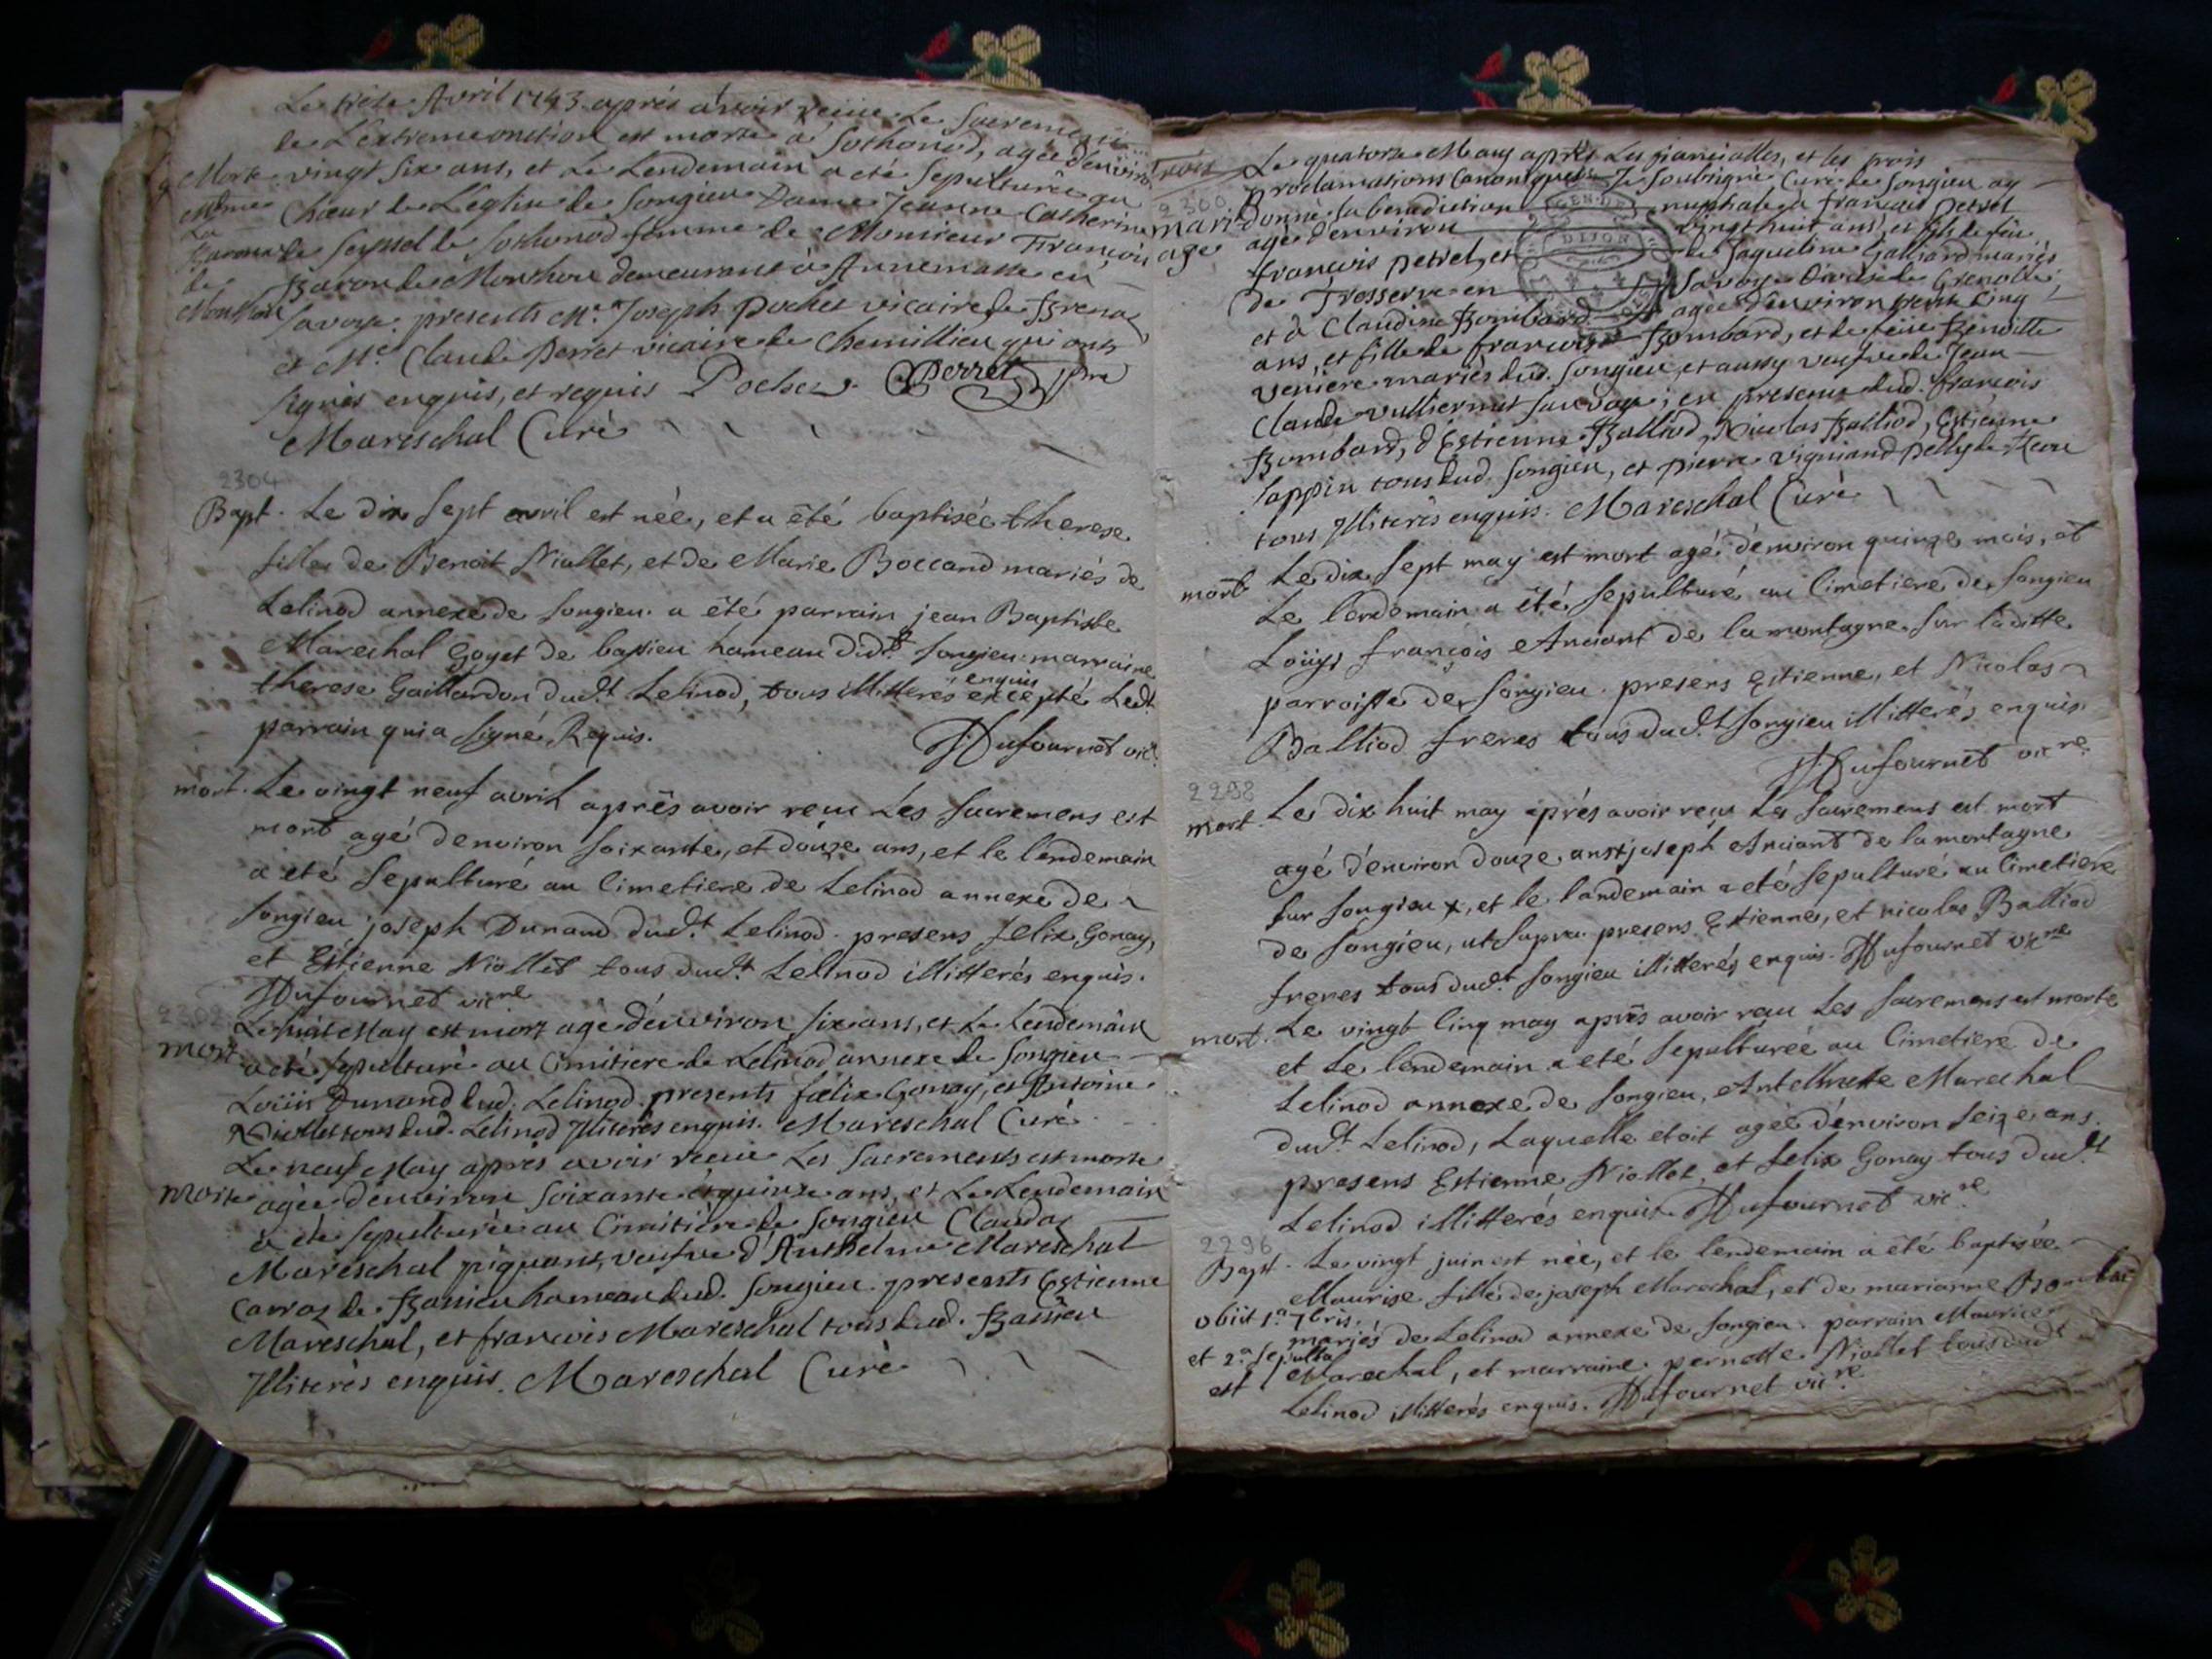 Le treize Avril 1743 aprés avoir reçüe Le Sacrement
de L'extreme onction est morte a Sothonod, agée denviron
Morte vingt six ans, et Le Lendemain a eté sepulturée au
Mdme Chœur de L'eglise de Songieu Dame Jeanne Catherine
La
Baronne de Seyssel de Sothonod femme de Monsieur François
de Baron de Monthou demeurant à Annemasse en
Monthou Savoye. presents Mr. Joseph Pochet vicaire de Brenaz
et Mre Claude Perret vicaire de Chemillieu qui ont
signés enquis, et requis Pochet. Perret ptre
Mareschal Curè
2304
Bapt. Le dix sept avril est née, et a été baptisée therese
fille de Benoit Niollet, et de Marie Boccand mariés de
Lelinod annexe de Songieu. a été parrain jean Baptiste
Marechal Goyet de bassieu hameau dudt Songieu marraine
enquis
therese Gaillardon dudt. Lelinod, tous illitterés excepté Ledt.
parrain qui a signé Requis. Dufournet vic.
mort. Le vingt neuf avril aprês avoir reçu Les Sacremens est
mort agé denviron soixante, et douze ans, et le lendemain
a eté Sepulturé au Cimetiere de Lelinod annexe de
Songieu joseph Dunand dudt. Lelinod. presens felix Gonay,
et Estienne Niollet tous dudt. Lelinod illitterés enquis.
Dufournet vicre
2302
Le huit May est mort agé denviron six ans, et Le Lendemain
mort a eté sepulturé au Cimitiere de Lelinod annexe de Songieu
Loüis Dunand dud. Lelinod. presents fœlix Gonay, et Antoine
Niollet tous dud. Lelinod Illiterés enquis. Mareschal Curè
Le neuf May aprés avoir reçüe Les Sacrements est morte
morte agée denviron soixante et quinze ans, et Le Lendemain
a eté sepulturée au Cimitiere de Songieu Clauda
Mareschal piquant, veufve d'Anthelme Mareschal
Carraz de Bassieu hameau dud. Songieu. presents Estienne
Mareschal, et francois Mareschal tous dud. Bassieu
Illiterés enquis. Mareschal Curè
Le quatorze May aprés Les fiancialles, et les trois
proclamations Canoniques Je soubsigné Curé de Songieu ay
2300
mari donné la benediction nuptiale a francois Petrel
age agé d'environ vingt huit ans, et fils de feu
francois Petrel, et de Jaqueline Galliard mariés
de Tresserve en Savoye Diocese de Grenoble
et à Claudine Bombard agée denviron trente Cinq
ans, et fille de francois Bombard, et de feüe Benoitte
Veniere mariés dud. Songieu, et aussy veufve de Jean
Claude Vulliermet Sauvage; en presence dud. francois
Bombard, d'Estienne Balliod, Nicolas Balliod, Estienne
Sappin tous dud. Songieu, et pierre Vigniand Pelly
tous Illiterés enquis. Mareschal Curè
mort Le dix sept may est mort agé d'environ quinze mois, et
Le lendemain a été sepulturé au Cimetiere de Songieu
Loüys françois Anciant de la montagne sur laditte
parroisse de Songieu. presens Estienne, et Nicolas
Balliod freres tous dudt. Songieu illitterés enquis.
Dufournet vicre
2298
mort. Le dix huit may aprés avoir reçu Les Sacremens est mort
agé d'environ douze ans joseph Anciant de la montagne
sur Songieu, et le landemain a eté sepulturé au Cimetiere
de Songieu, ut supra. presens Estienne, et nicolas Balliod
freres tous dudt. Songieu illitterés enquis. Dufournet vicre
mort. Le vingt Cinq may aprês avoir reçu Les Sacremens est morte
et Le lendemain a eté Sepulturée au Cimetiere de
Lelinod annexe de Songieu, Antelmette Marechal
dudt. Lelinod, Laquelle etoit agée d'environ seize ans.
presens Estienne Niollet, et felix Gonay tous dudt.
Lelinod illitterés enquis Dufournet vicre
2296
Bapt. Le vingt juin est née, et le lendemain a été baptisée
Maurise fille de joseph Marechal, et de marianne
obiit 1a 7bris.
mariés de Lelinod annexe de Songieu. parrain Maurice
et 2a sepulta
est Marechal, et marraine pernette Niollet tous dudt
Lelinod illitterés enquis. Dufournet vicre.
GEN. DE
DIJON